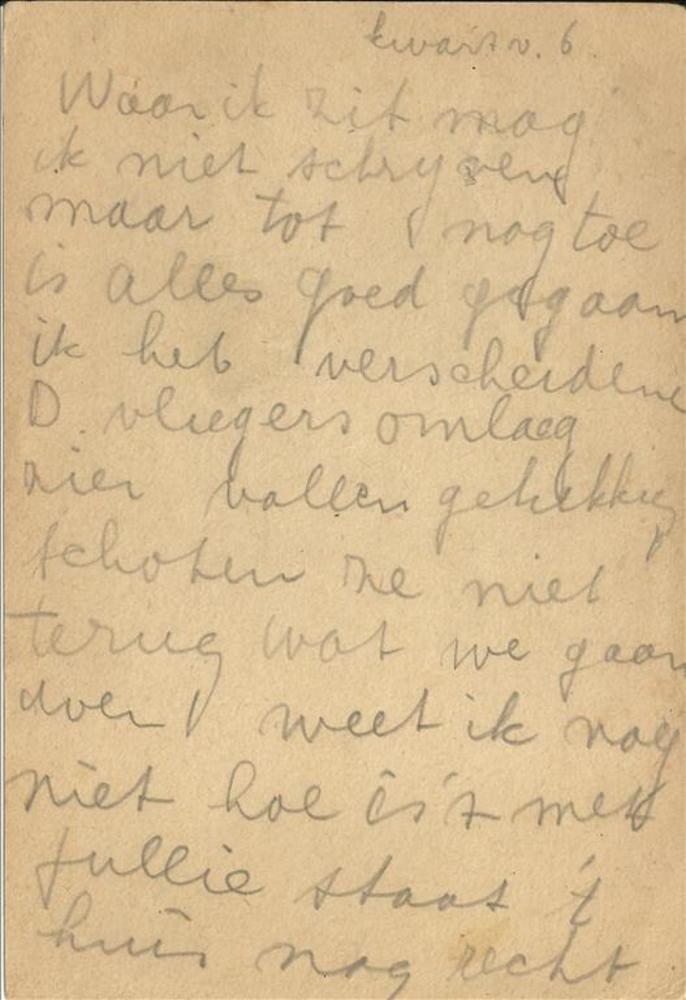 kwart v. 6.
Waar ik zit mag
ik niet schryven
maar tot nog toe
is alles goed gegaan
ik heb verscheidene
D. vliegers omlaag
zien vallen gelukkig
schoten ze niet
terug wat we gaan
doen weet ik nog
niet hoe is 't met
jullie staat 't
huis nog recht